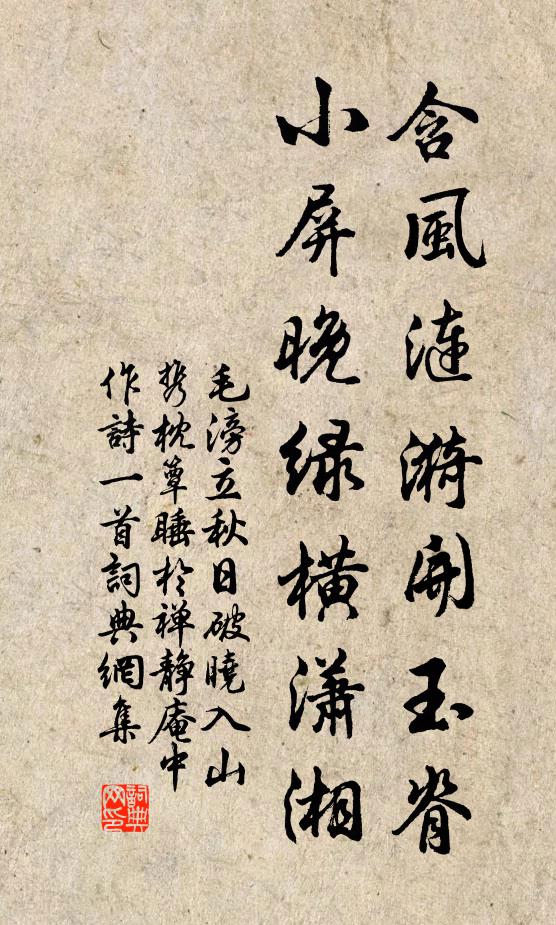 含風漣漪開玉脊
小屏晚绿橫潇湘
毛滂立秋日破曉入山
携枕簟睡於禅靜庵中
作詩一首詞典網集
詞典网印